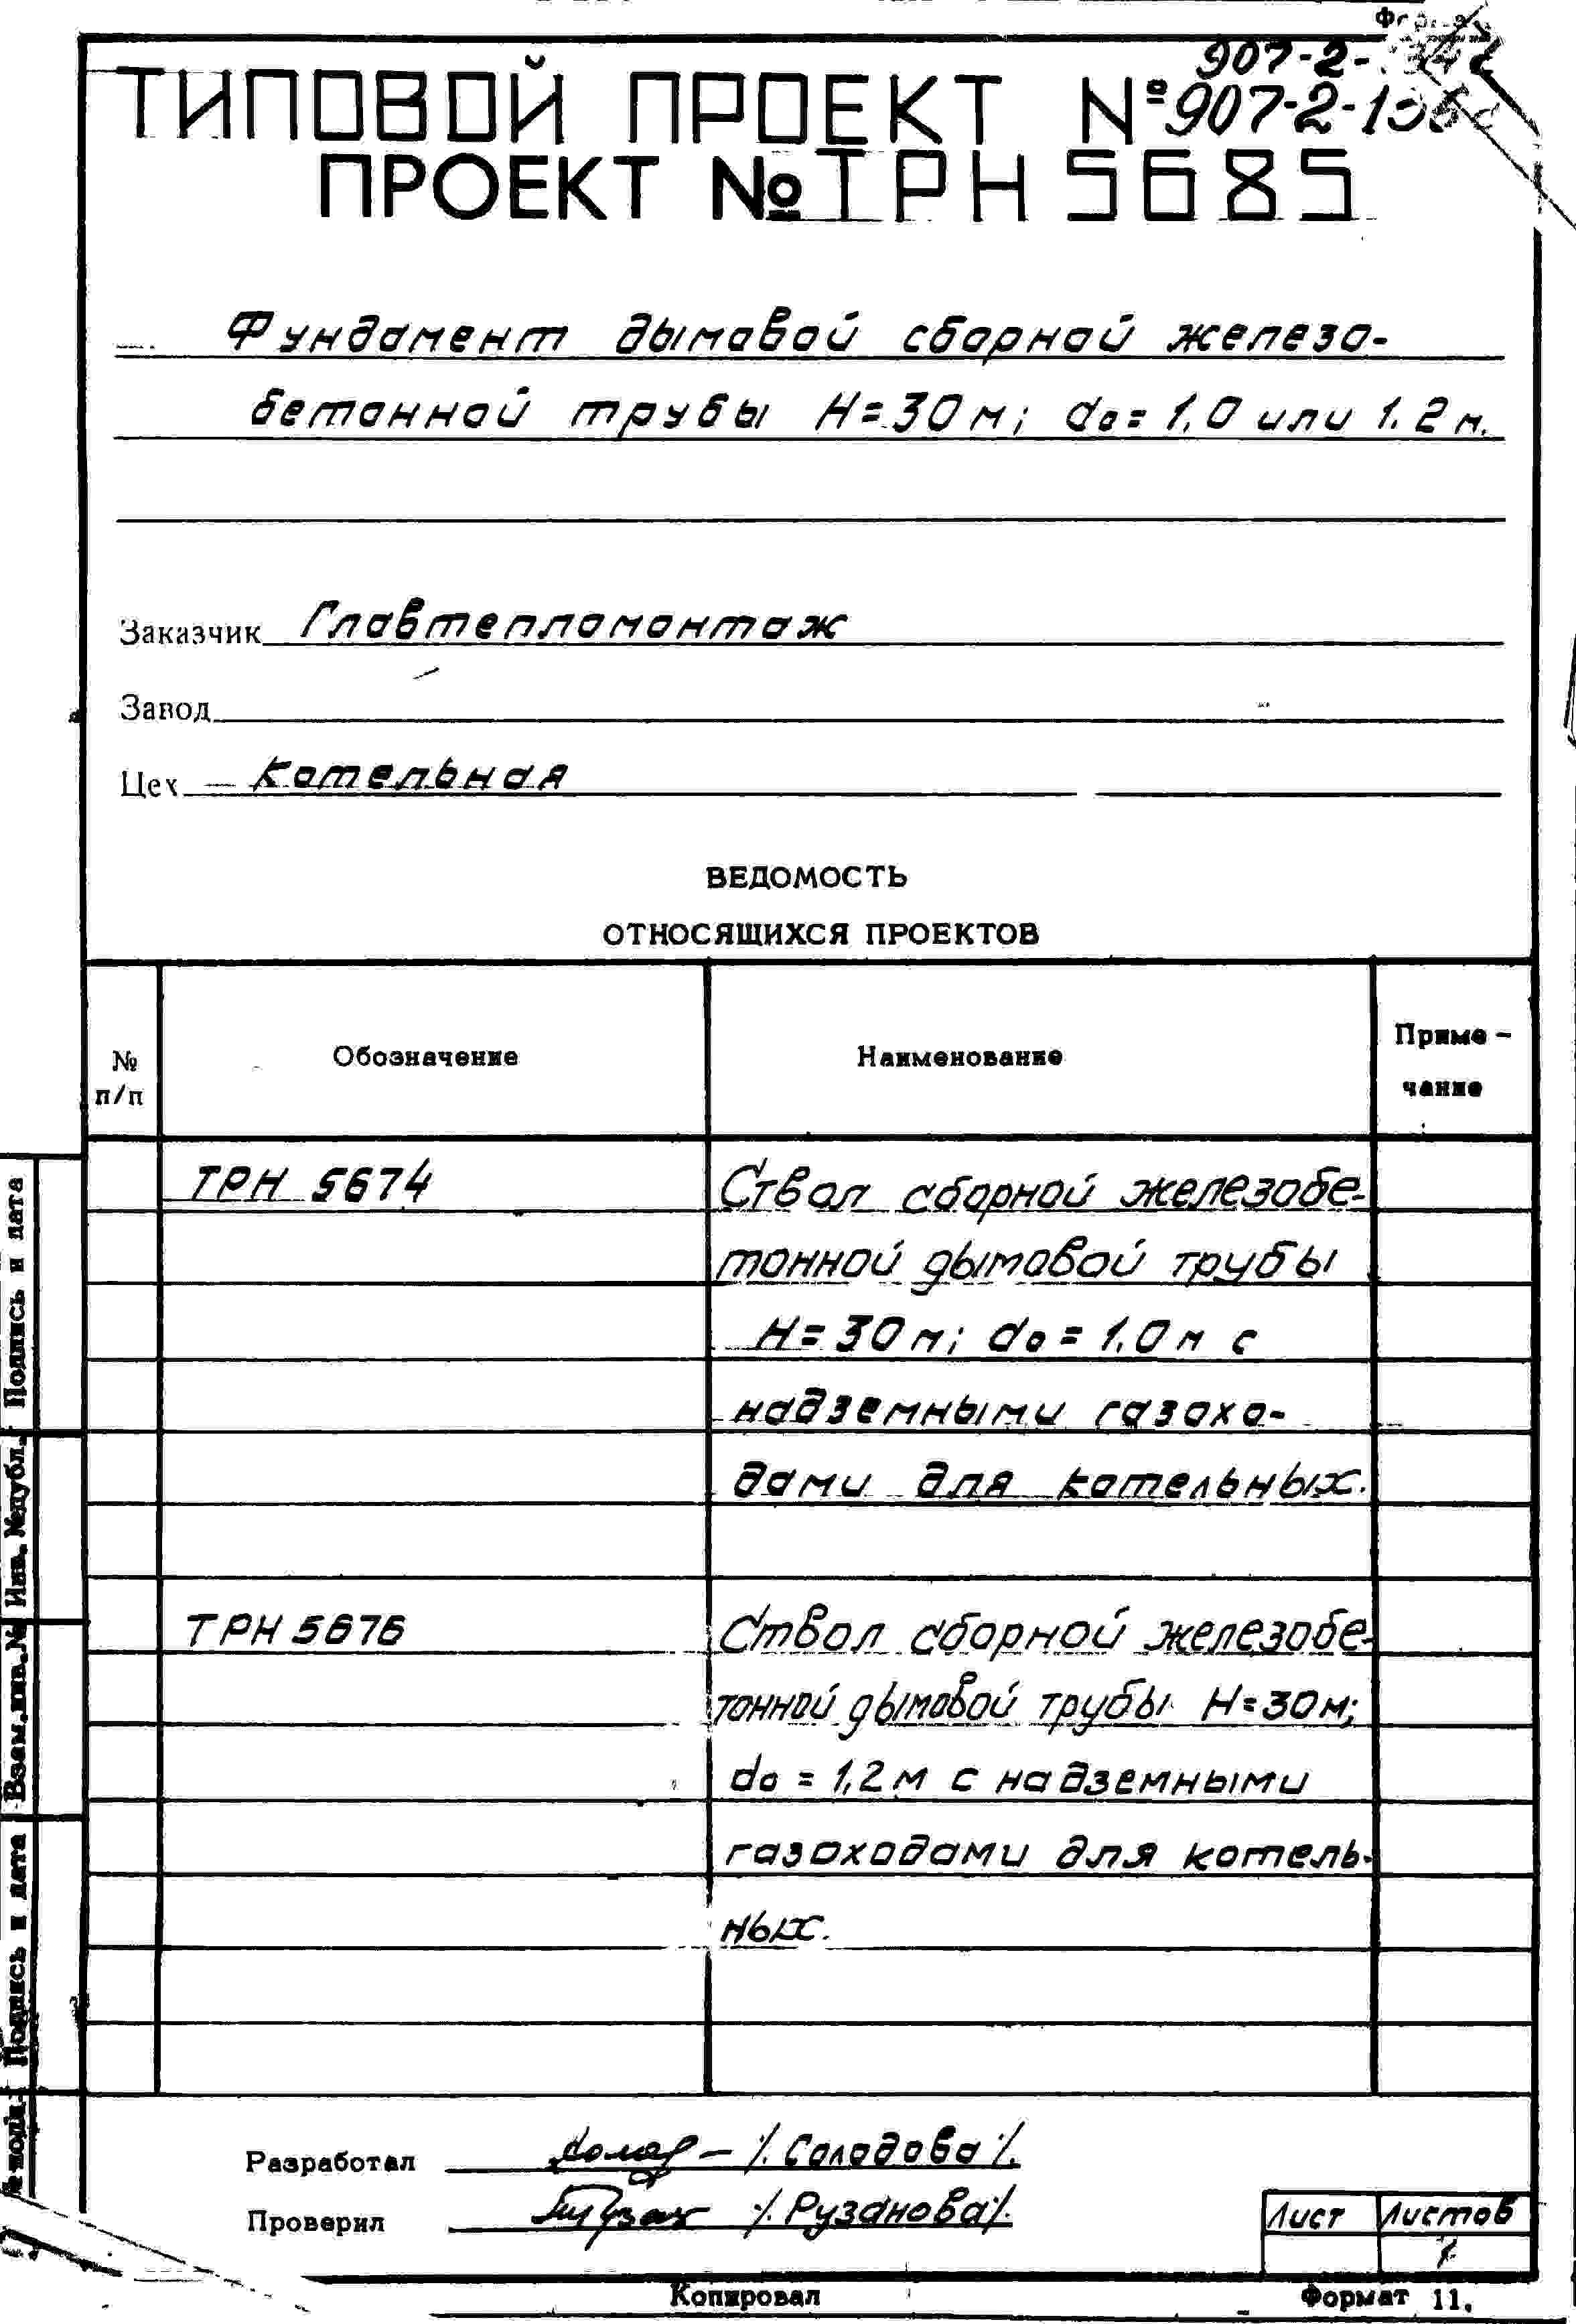 907-2-
ТИПОВОЙ ПРОЕКТ №
ПРОЕКТ № ТРН 5685
Фундамент дымовой сборной железо-
бетонной трубы H=30м; d₀=1,0 или 1.2м.
Заказчик Главтепломонтаж
Завод
Цех Котельная
ВЕДОМОСТЬ
ОТНОСЯЩИХСЯ ПРОЕКТОВ
№ п/п
Обозначение
Наименование
Приме-
чание
ТРН 5674 Ствол сборной железобе-
тонной дымовой трубы
H=30м; d₀=1,0м с
надземными газохо-
дами для котельных.
ТРН 5676 Ствол сборной железобе-
тонной дымовой трубы H=30м;
d₀=1,2м с надземными
газоходами для котель-
ных.
Разработал /.Солодова/.
Проверил /.Рузанова/.
Лист Листов
Копировал
Формат 11.
Подпись и дата
Инв. №дубл.
Взам.инв.№
Подпись и дата
№подл.